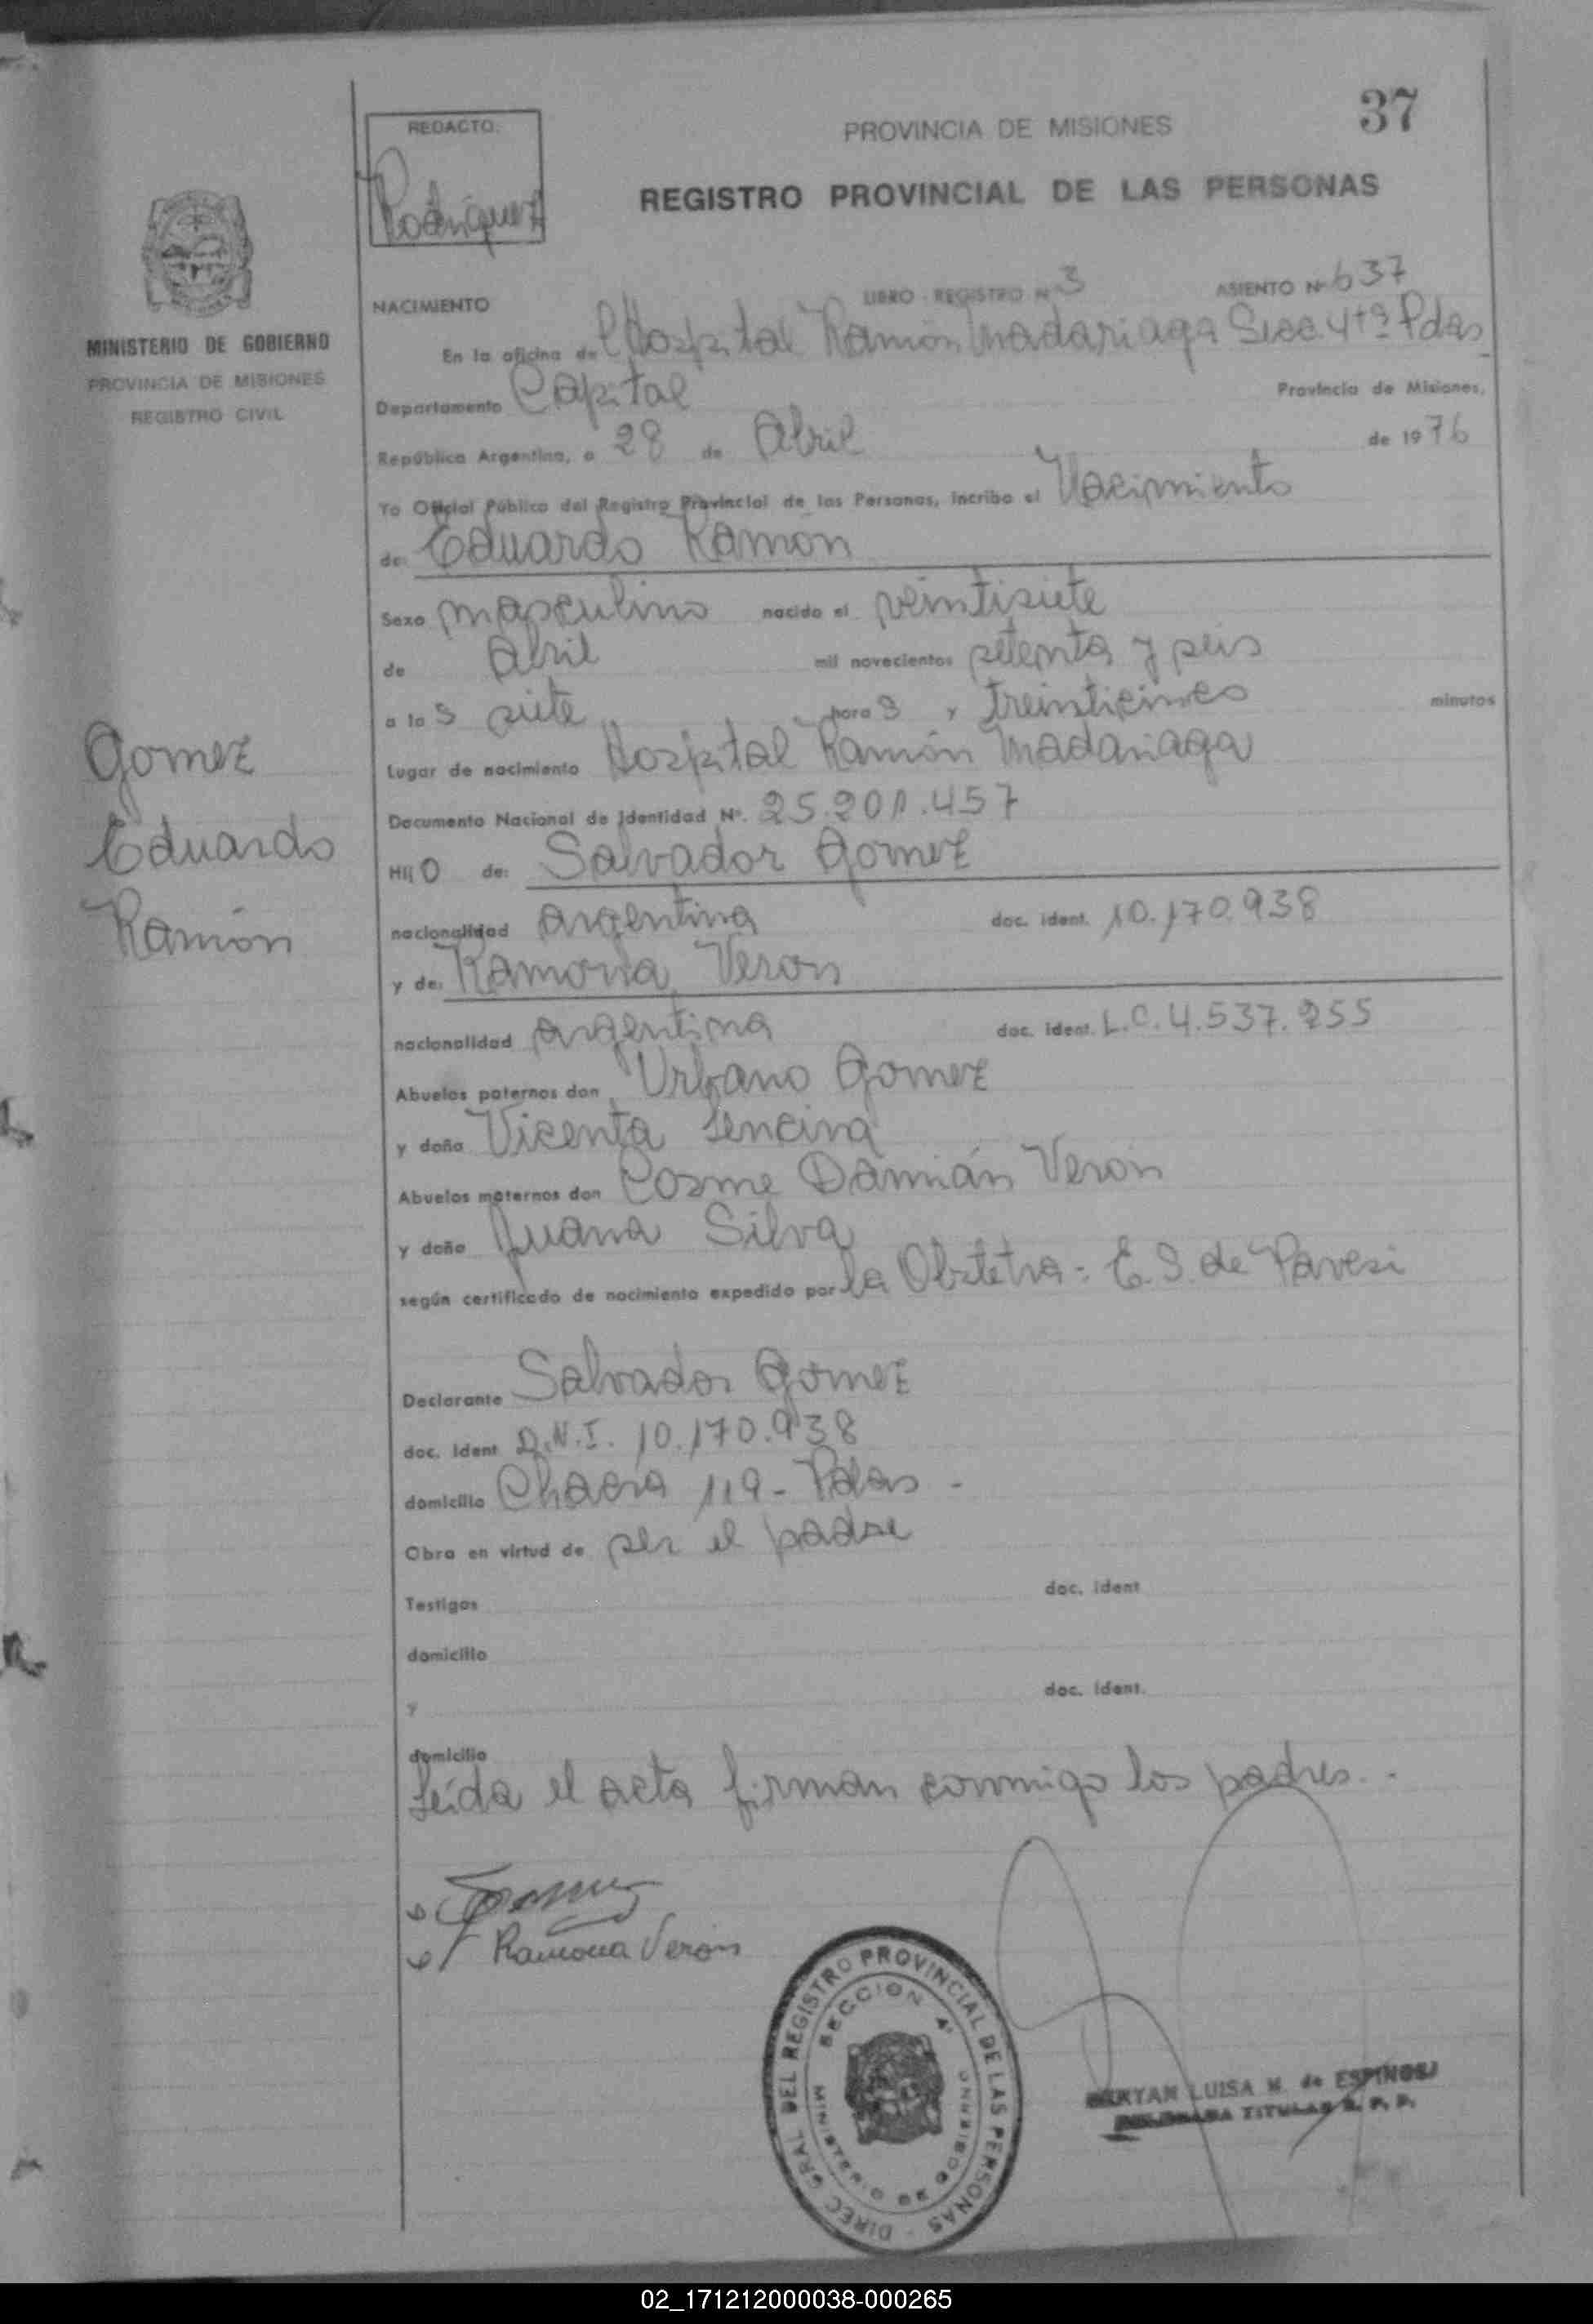 37
REDACTO:
Rodríguez
PROVINCIA DE MISIONES
REGISTRO PROVINCIAL DE LAS PERSONAS
MINISTERIO DE GOBIERNO
PROVINCIA DE MISIONES
REGISTRO CIVIL
NACIMIENTO LIBRO - REGISTRO Nº 3 ASIENTO Nº 637
En la oficina del Hospital Ramón Madariaga Secc. 4ta Pdas
Departamento Capital Provincia de Misiones,
República Argentina, a 28 de Abril de 1976
Yo Oficial Público del Registro Provincial de las Personas, incribo el Nacimiento
de: Eduardo Ramón
Sexo masculino nacido el veintisiete
de Abril mil novecientos setenta y seis
a las siete horas y treinticinco minutos
Lugar de nacimiento Hospital Ramón Madariaga
Documento Nacional de Identidad Nº. 25.201.457
Hijo de: Salvador Gomez
nacionalidad argentina doc. ident. 10.170.938
y de: Ramona Veron
nacionalidad argentina doc. ident. L.C. 4.537.255
Abuelos paternos don Urbano Gomez
y doña Vicenta Lencina
Abuelos maternos don Cosme Damián Veron
y doña Juana Silva
según certificado de nacimiento expedido por la Obstetra: E. S. de Pavesi
Gomez
Eduardo
Ramón
Declarante Salvador Gomez
doc. ident D.N.I. 10.170.938
domicilio Chacra 119 - Pdas -
Obra en virtud de ser el padre
Testigos doc. ident
domicilio
y doc. ident.
domicilio
Leída el acta firman conmigo los padres. -
Ramona Veron
DIREC. GRAL. DEL REGISTRO PROVINCIAL DE LAS PERSONAS
SECCION 4ª
MINISTERIO DE GOBIERNO
LUISA M. de ESPINOSA
TITULAR R. P. P.
02_171212000038-000265